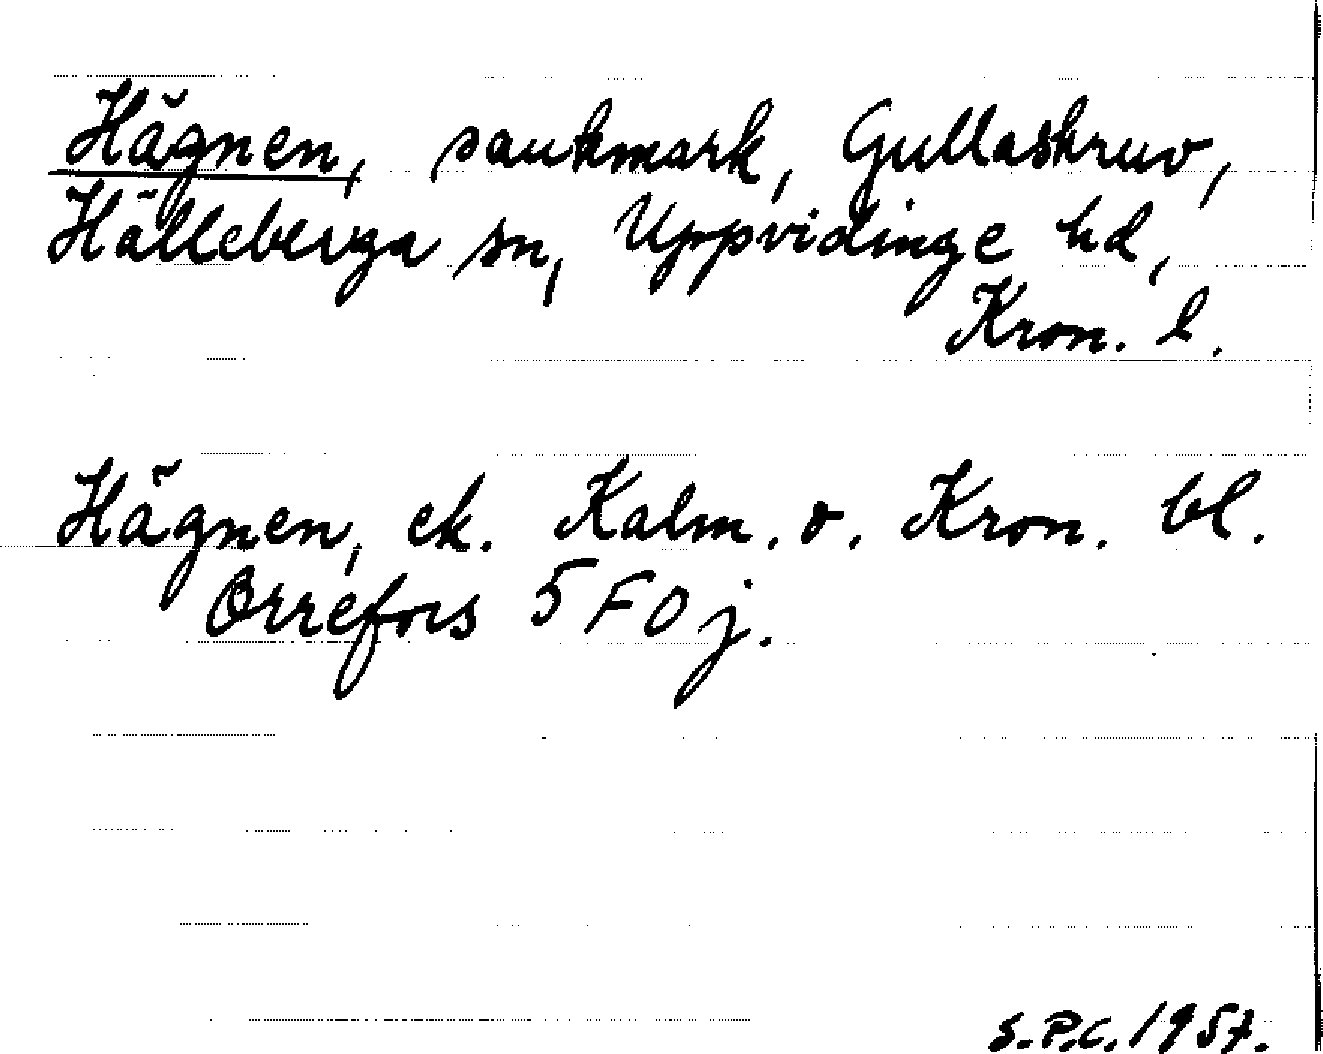 Hägnen, sankmark, Gullaskruv,
Hälleberga sn, Uppvidinge hd,
Kron. l.
Hägnen, ek. Kalm. o. Kron. bl.
Orrefors 5 F 0 j.
S.P.C. 1957.